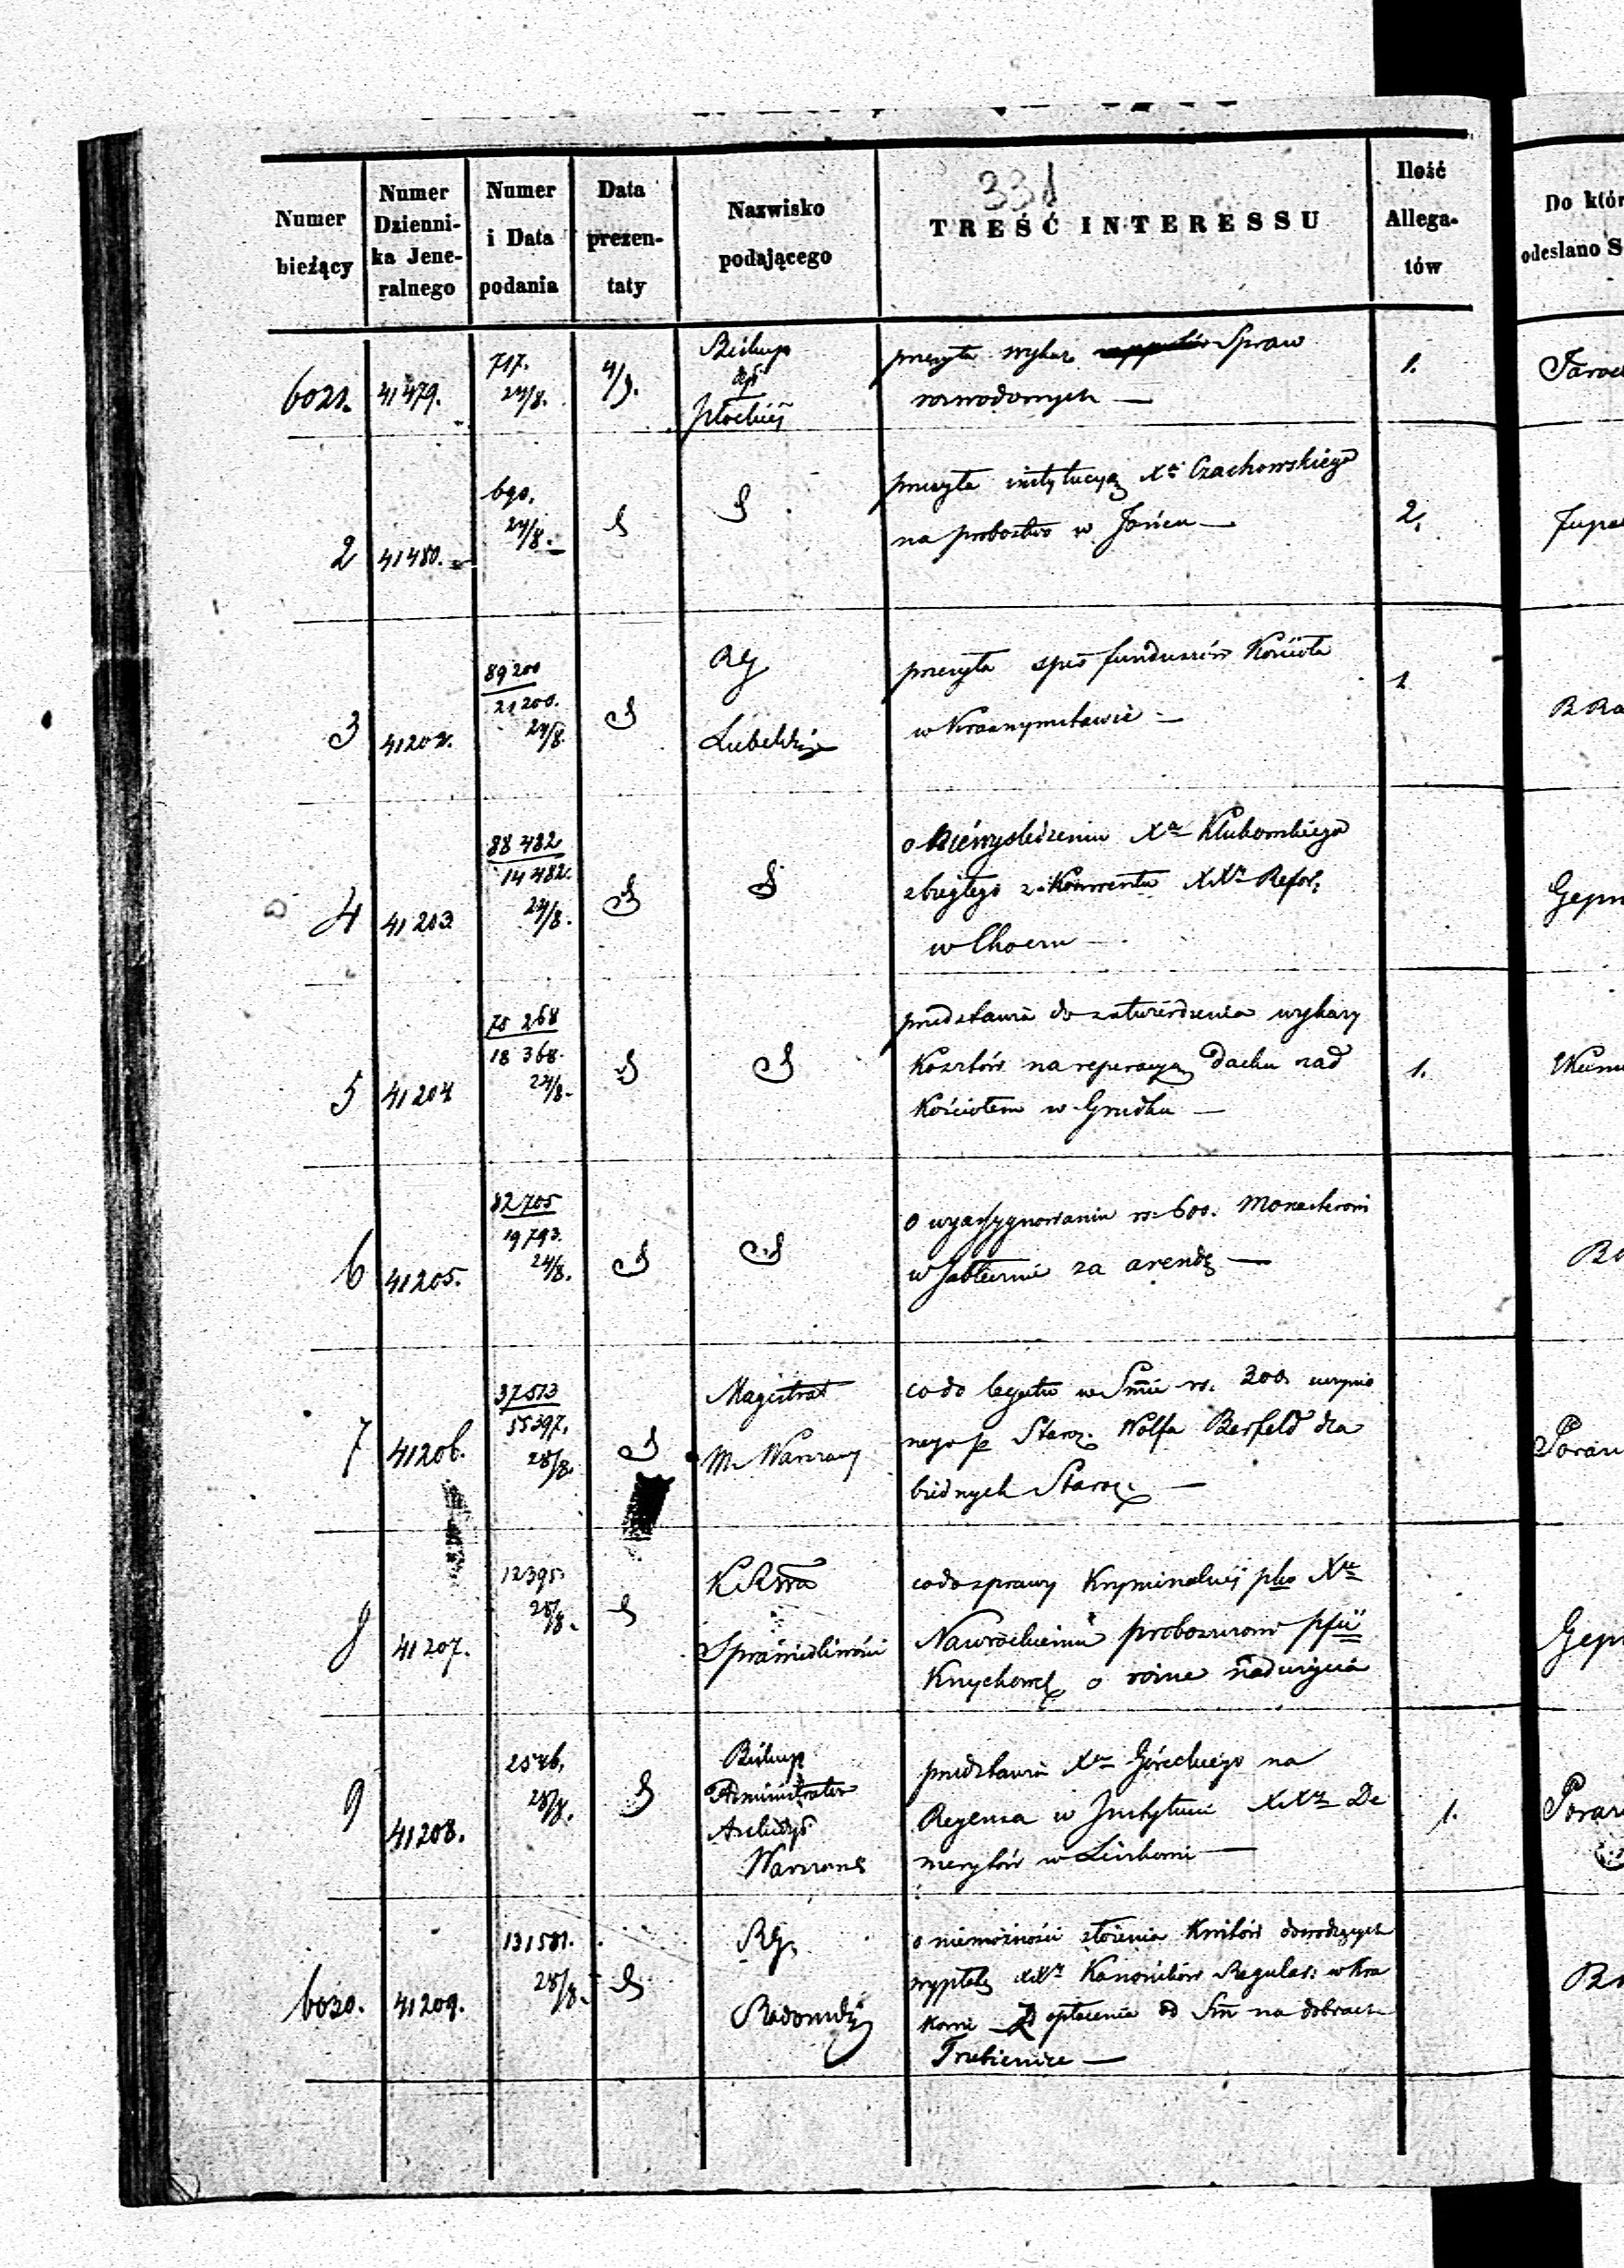 331
Numer bieżący
Numer Dzienni-ka Jene-ralnego
Numer i Data podania
Data prezen-taty
Nazwisko podającego
TREŚĆ INTERESSU
Ilość Allega-tów
Do któr
odesłano S
6021. 41479. 717. 24/8. 4/9. Biskup dys Płockiéj
przesyła wykaz Spraw
rozwodowych — 1.
2 41480. 690. 24/8.
przesyła instytucyą Xa Czachowskiego
na probostwo w Jońcu — 2.
3 41202. 89200 21200. 24/8. RG Lubelski
przesyła spis funduszów Kościoła
w Krasnymstawie — 1
4 41203 88482 14482. 24/8.
o niewyśledzeniu Xa Klubowskiego
zbiegłego z Konwentu XXy Refor.
w Choczu —
5 41204 18368. 24/8.
przedstawia do zatwierdzenia wykazy
Kosztów na reperacyą Dachu nad
Kościołem w Grudku — 1.
6 41205. 82705 19793. 24/8.
o wyassygnowaniu rs. 600. Monasterowi
w Jabłecznie za arendę —
7 41206. 37513 55397. 28/8. Magistrat M. Warszawy
co do legatu w Smie rs. 300. uczynio
nego p. Staroz. Wolfa Berfeld dla
biednych Staroz. —
8 41207. 12395. 28/8. K.R.S. Sprawiedliwości
co do sprawy Kryminalnéj pko Xu
Nawrockiemu proboszczowi pfii
o różne nadużycia
9 41208. 2546. 28/8. Biskup Administrator Archidys Warszaws
przedstawia Xa Góreckiego na
Regensa w Instytucie XXy De
merytów w Liszkowie — 1.
6030. 41209. 131581. 28/8. RG. Radomski
o niemożności złożenia Kwitów dowodzących
wypłatę XXm Kanoników Regular: w Kra
kowie opłacenia od Sm na dobrach
Trubienice —